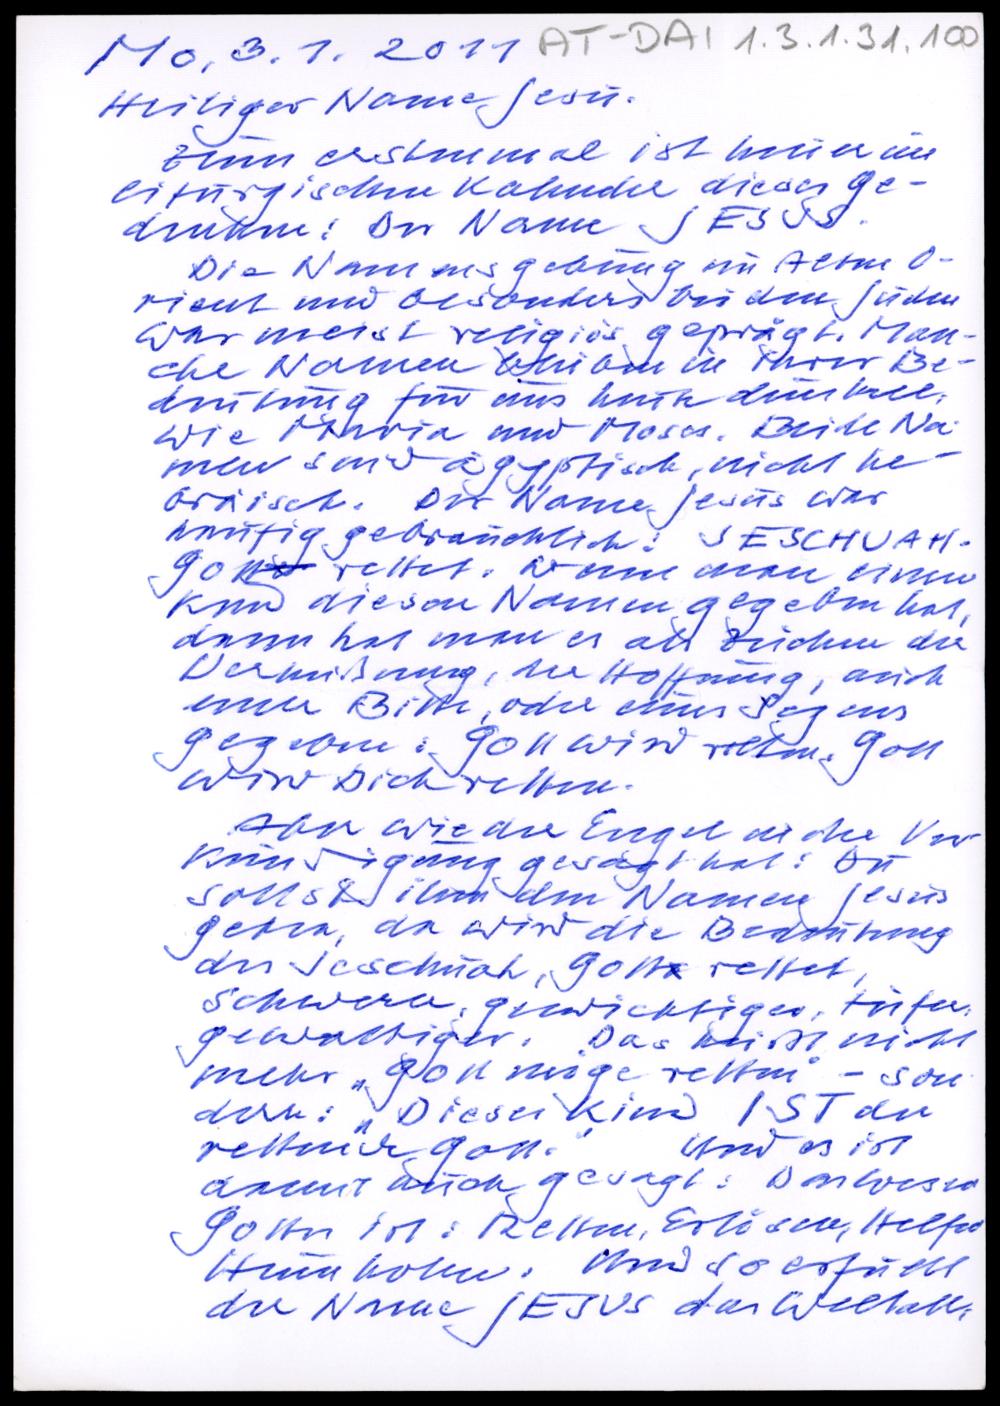 Mo, 3. 1. 2011 AT-DAI 1.3.1.31.100
Heiliger Name Jesu.
Zum erstenmal ist heuer im
liturgischen Kalender dieses Ge-
denken: Der Name JESUS.
Die Namensgebung im Alten O-
rient und besonders bei den Juden
war meist religiös geprägt. Man-
che Namen bleiben in ihrer Be-
deutung für uns heute dunkel,
wie Maria und Moses. Beide Na-
men sind ägyptisch, nicht he-
bräisch. Der Name Jesus war
häufig gebräuchlich: JESCHUAH-
Gott rettet. Wenn man einem
Kind diesen Namen gegeben hat,
dann hat man es als Zeichen der
Verheißung, der Hoffnung, auch
einer Bitte, oder eines Segens
gegeben: Gott wird retten. Gott
wird Dich retten.
Aber wie der Engel in der Ver
kündigung gesagt hat: Du
sollst ihm den Namen Jesus
geben, da wird die Bedeutung
des Jeschuah, Gott rettet,
schwerer, gewichtiger, tiefer,
gewaltiger. Das heißt nicht
mehr „Gott möge retten" – son
dern: „Dieses Kind IST der
rettende Gott." Und es ist
damit auch gesagt: Das Wesen
Gottes ist: Retten, Erlösen, Helfen
Heimholen. Und so erfüllt
der Name JESUS das Weltall,